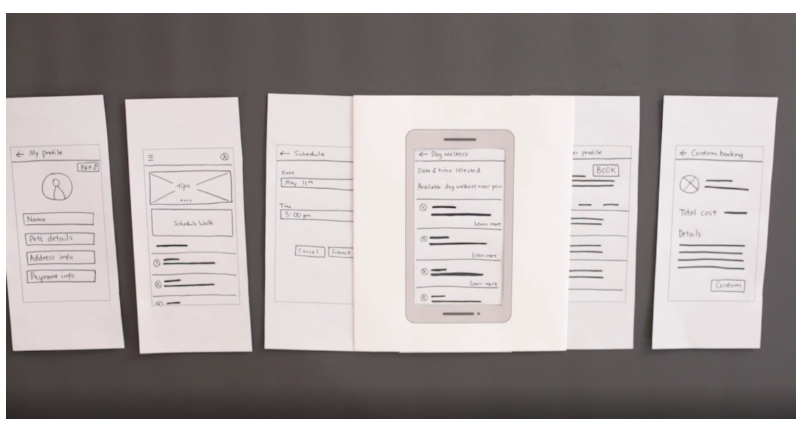 ← My profile
Name
Pets details
Address info
Payment info
Tips
Schedule Walk
← Schedule
Date
May 11th
Time
5:00 pm
Cancel
Submit
← Dog walkers
Date & time selected
Available dog walkers near you
Learn more
Learn more
Learn more
profile
BOOK
← Confirm booking
Total cost
Details
Confirm